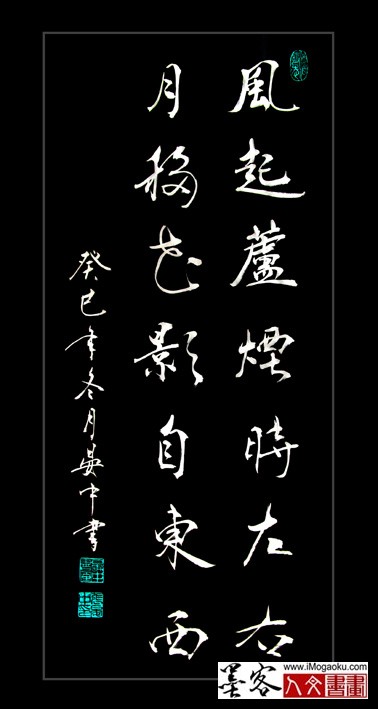 風起蘆煙時左右
月移花影自東西
癸巳年冬月中書
墨客
www.iMogaoku.com
人文書畫